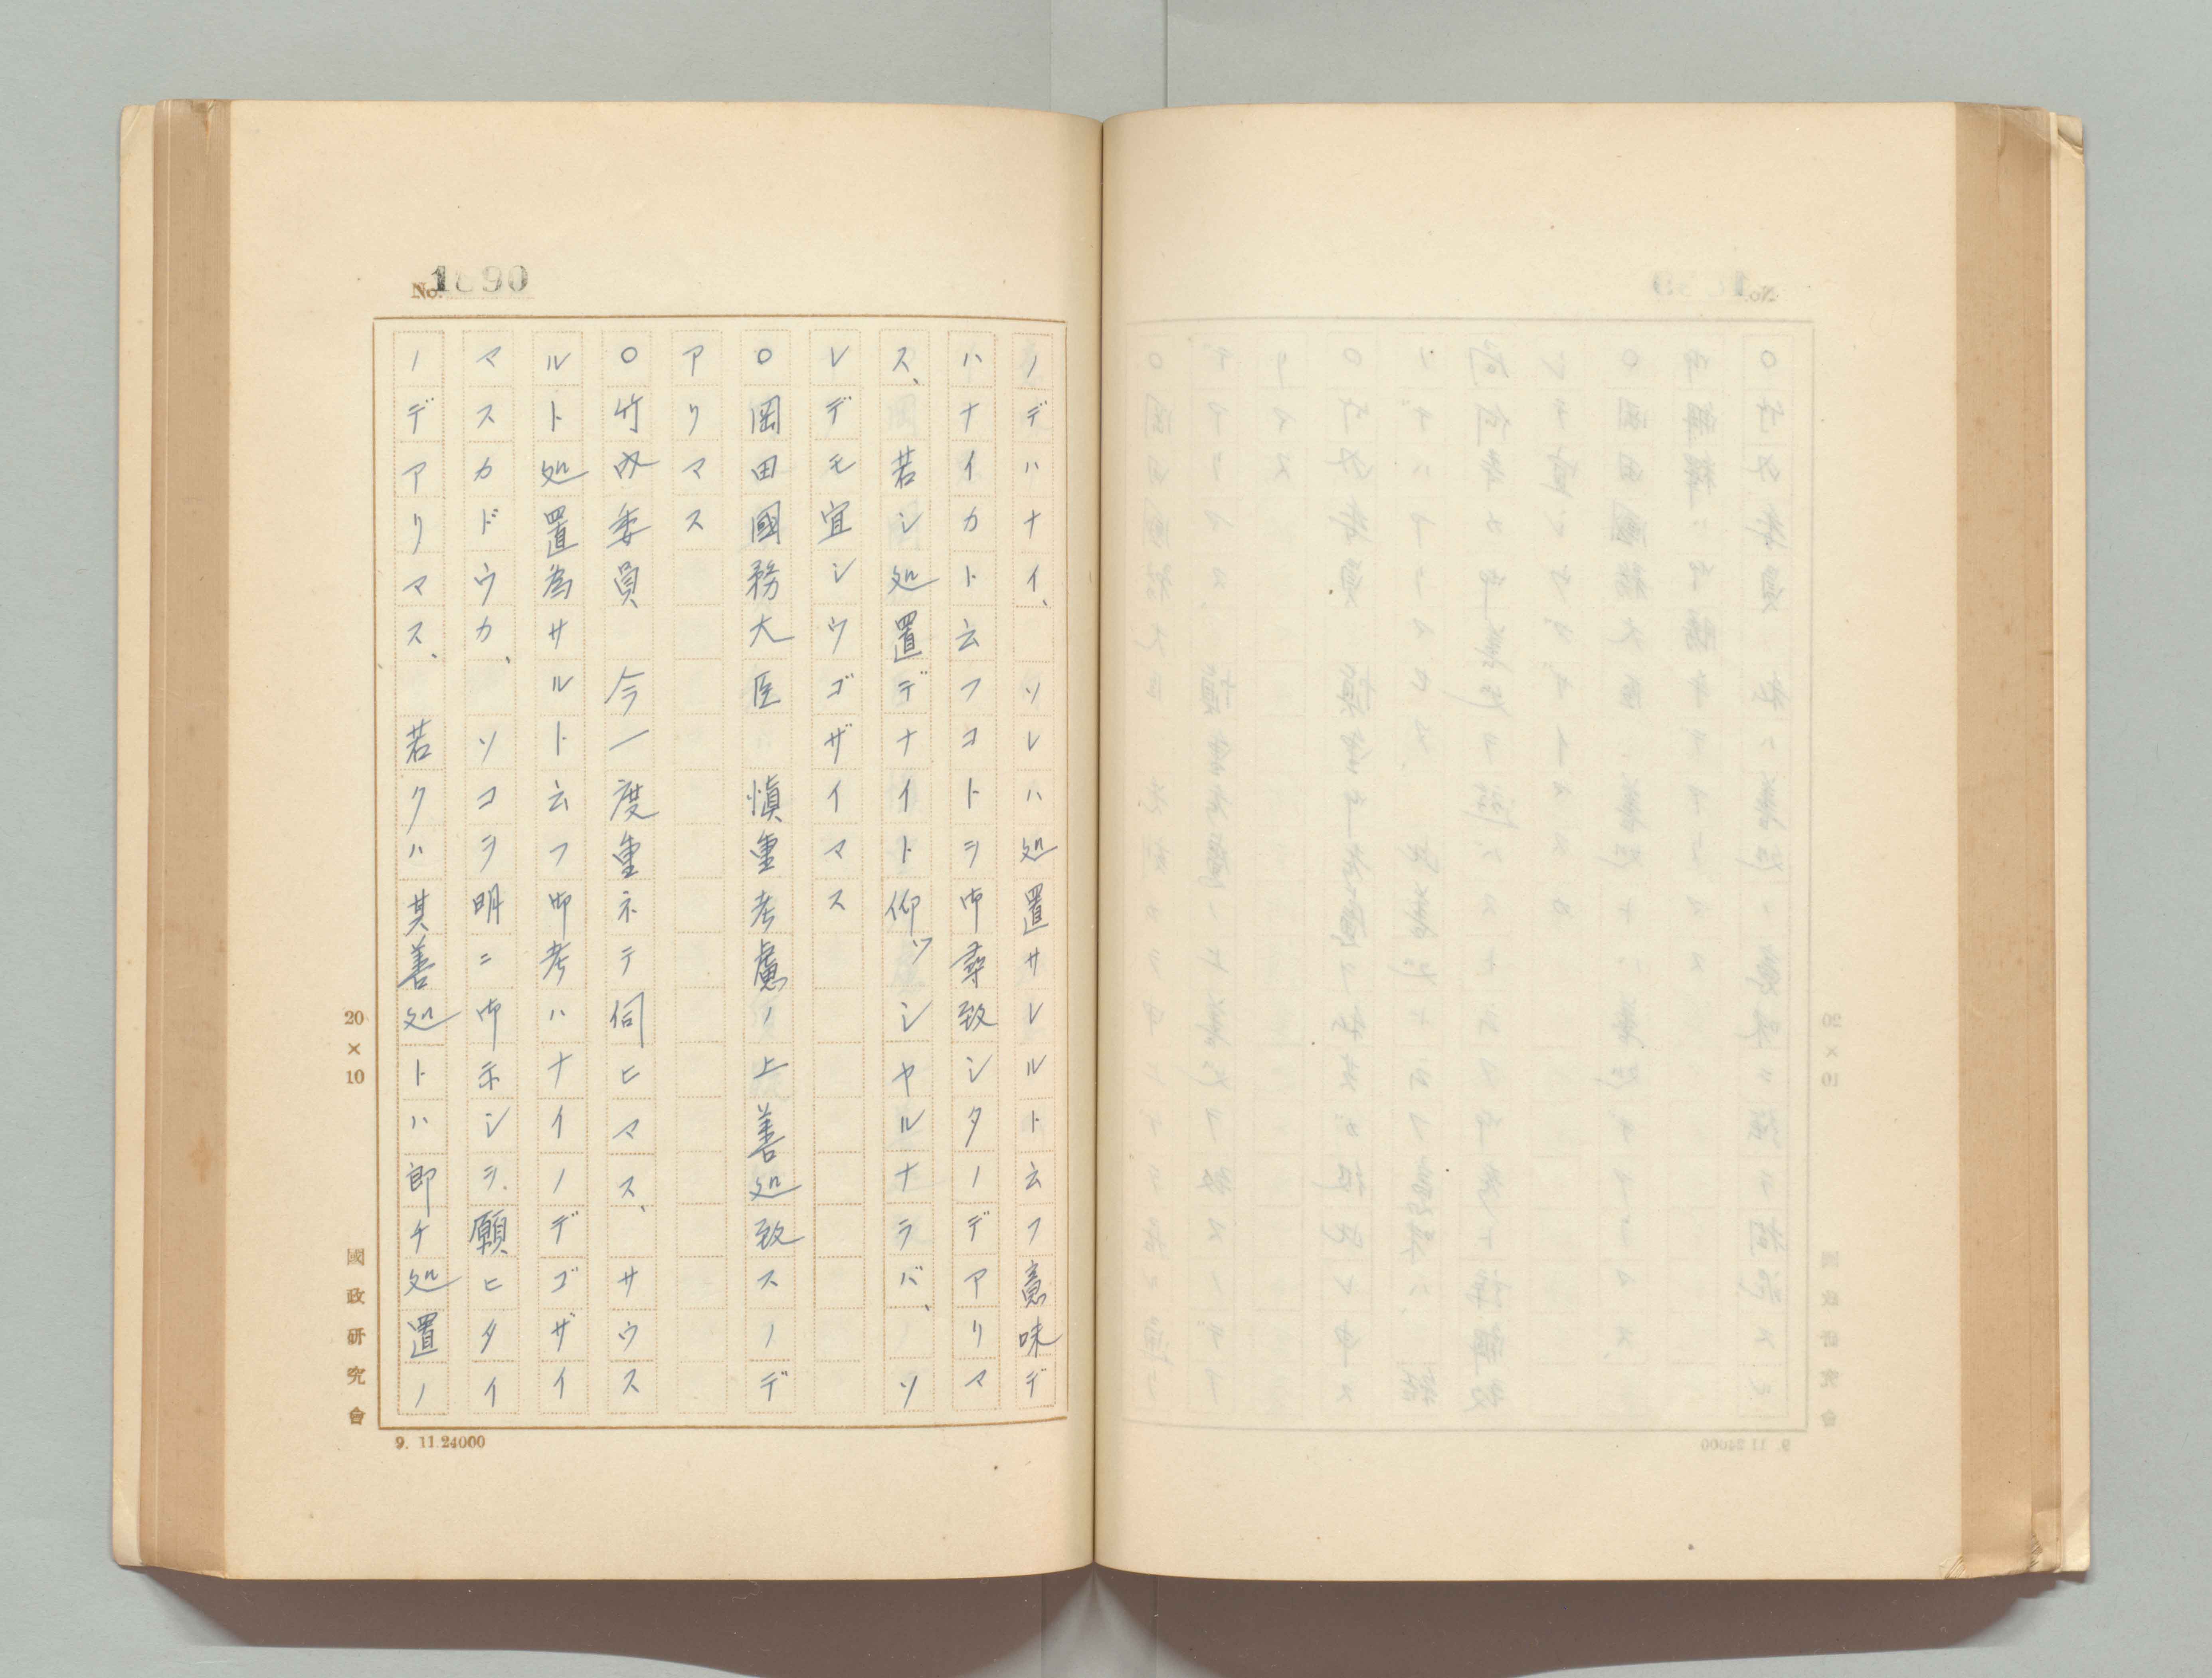 No. 1890
ノデハナイ、ソレハ処置サレルト云フ意味デ
ハナイカト云フコトヲ御尋致シタノデアリマ
ス、若シ処置デナイト仰ツシヤルナラバ、ソ
レデモ宜シウゴザイマス
〇岡田國務大臣 慎重考慮ノ上善処致スノデ
アリマス
〇竹内委員 今一度重ネテ伺ヒマス、サウス
ルト処置為サルルト云フ御考ハナイノデゴザイ
マスカドウカ、ソコヲ明ニ御示シヲ願ヒタイ
ノデアリマス、若クハ其善処トハ即チ処置ノ
20×10
國政研究會
9. 11.24000